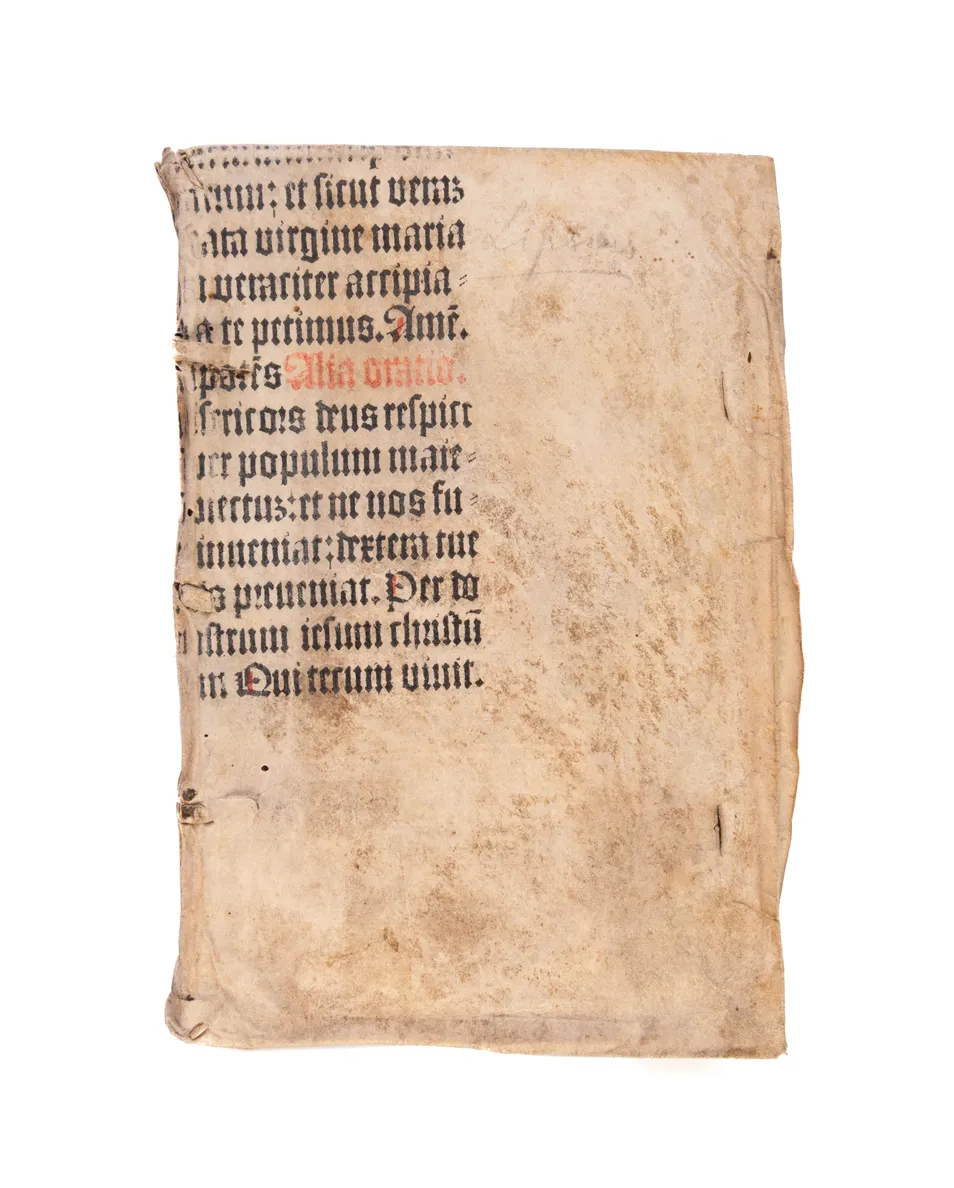 et sicut veraz
ata virgine maria
veraciter accipia⸗
a te petimus. Amē.
Alia oratio.
sericors deus respice
populum maie⸗
uectuz: et ne nos fu⸗
inueniat: dextera tue
s preueniat. Per do
strum iesum christū
m Qui tecum viuit.
Lipsius